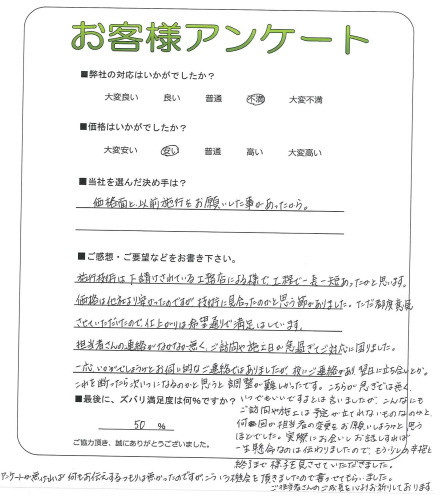 お客様アンケート
■弊社の対応はいかがでしたか?
大変良い 良い 普通 不満 大変不満
■価格はいかがでしたか?
大変安い 安い 普通 高い 大変高い
■当社を選んだ決め手は?
価格面と、以前施行をお願いした事があったから。
■ご感想・ご要望などをお書き下さい。
施行技術は下請けされている工務店にお様で、工程で一長一短あったかと思います。
価格は他社より安かったのですが技術に見合ったのかと思う節がありました。ただ都度意見
させていただいたので、仕上がりは希望通りで満足はしています。
担当者さんの連絡がなかなか無く、ご訪問や施工日が急過ぎてご対応に困りました。
一応、いかがでしょうかとお伺い的なご連絡ではありましたが、夜にご連絡があり翌日に立ち会いとか。
これを断ったら次いつになるのかと思うと調整が難しかったです。こちらが急ぎでは無く、
いつでもいいですよとは言いましたが、こんなにも
■最後に、ズバリ満足度は何%ですか?
ご訪問や施工は予定が立てれないものなのかと、
何回か担当者の変更をお願いしようかと思う
50 %
ほどでした。実際にお会いしお話しすれば
ご協力頂き、誠にありがとうございました。
一生懸命なのは伝わりましたので、もう少しの辛抱と
終了まで様子を見させていただきました。
アンケートが無ければ何もお伝えするつもりは無かったのですが、こういう機会を頂きましたので書かせてもらいました。
ご担当者さんのご成長を心よりお祈りしております。